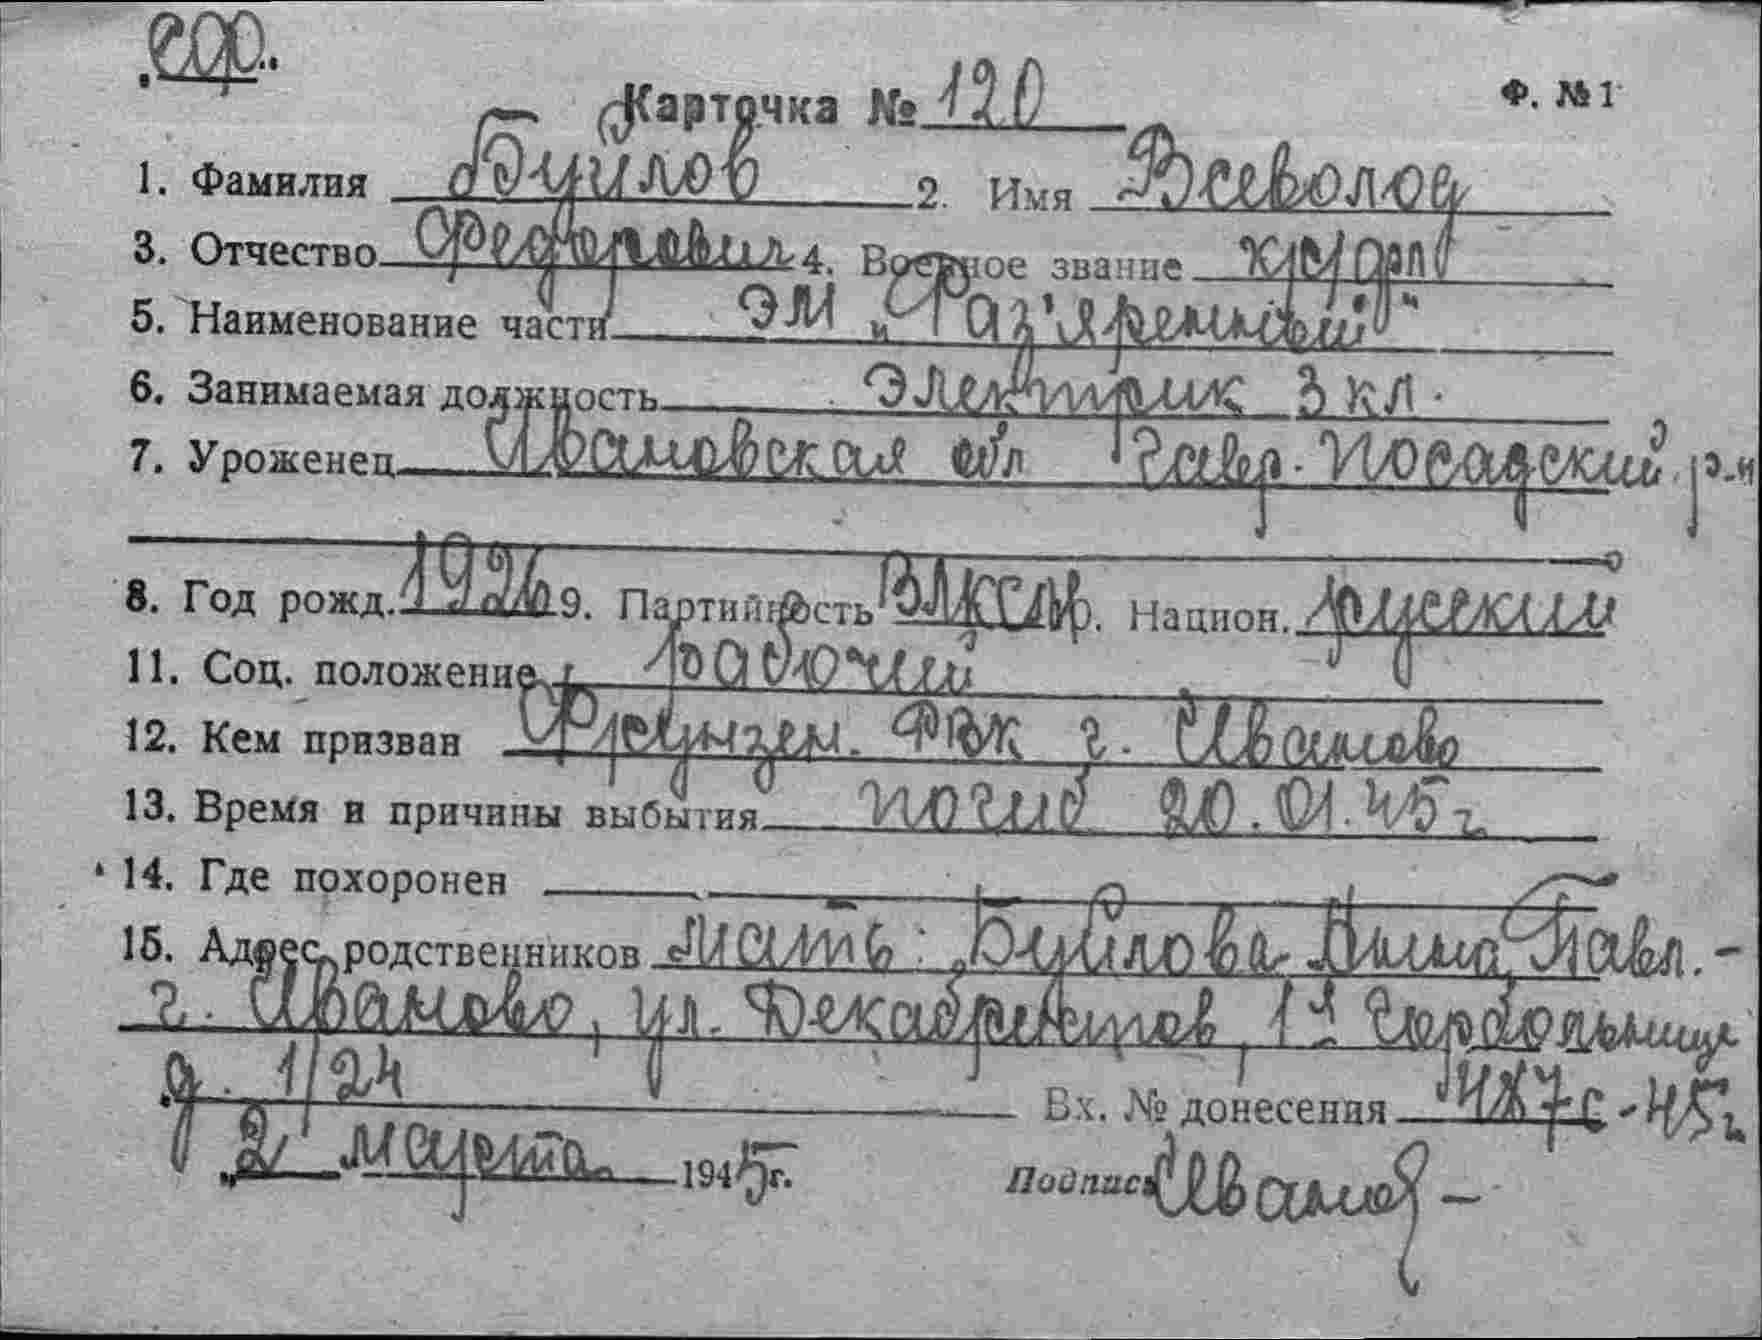 Карточка № 120 Ф. №1
1. Фамилия Буйлов 2. Имя Всеволод
3. Отчество Федорович 4. Военное звание кр/фл
5. Наименование части ЭМ „Раз'яренный"
6. Занимаемая должность Электрик 3 кл.
7. Уроженец Ивановская обл Гавр. Посадский р-н
8. Год рожд. 1926 9. Партийность ВЛКСМ 10. Национ. русский
11. Соц. положение рабочий
12. Кем призван Фрунзен. РВК г. Иваново
13. Время и причины выбытия погиб 20.01.45 г.
14. Где похоронен
15. Адрес родственников Мать: Буйлова Анна Павл. -
г. Иваново, ул. Декабристов, 1я Горбольница
д. 1/24
Вх. № донесения 487с-45г
„2" марта 1945г. Подпись Иванов